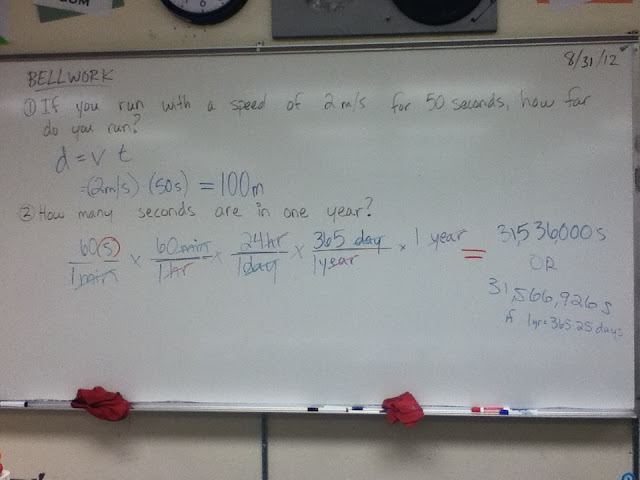 COM
8/31/12
BELLWORK
① If you run with a speed of 2 m/s for 50 seconds, how far
do you run?
d = v t
= (2m/s) (50s) = 100m
② How many seconds are in one year?
60 (s) / 1 min × 60 min / 1 hr × 24 hr / 1 day × 365 day / 1 year × 1 year = 31,536,000 s
OR
31,566,926 s
if 1yr = 365.25 days